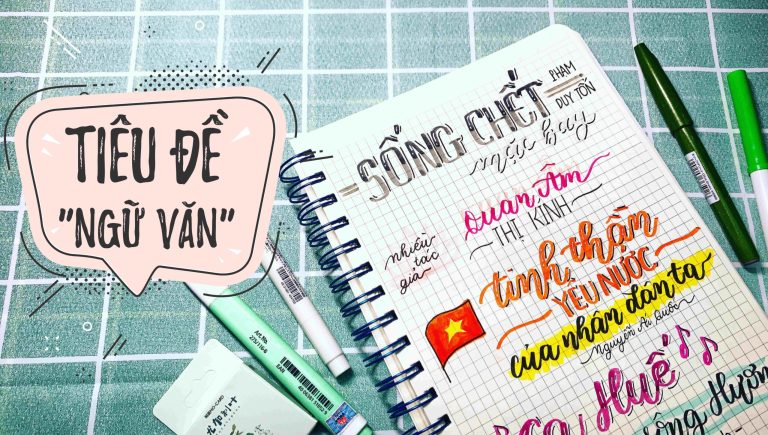 TIÊU ĐỀ
"NGỮ VĂN"
SỐNG CHẾT
PHẠM
DUY TỐN
mặc bay
Quan Âm
THỊ KÍNH
nhiều
tác
giả
tinh thần
YÊU NƯỚC
của nhân dân ta
Nguyễn Ái Quốc
Ca Huế
sông Hương
Art.No.